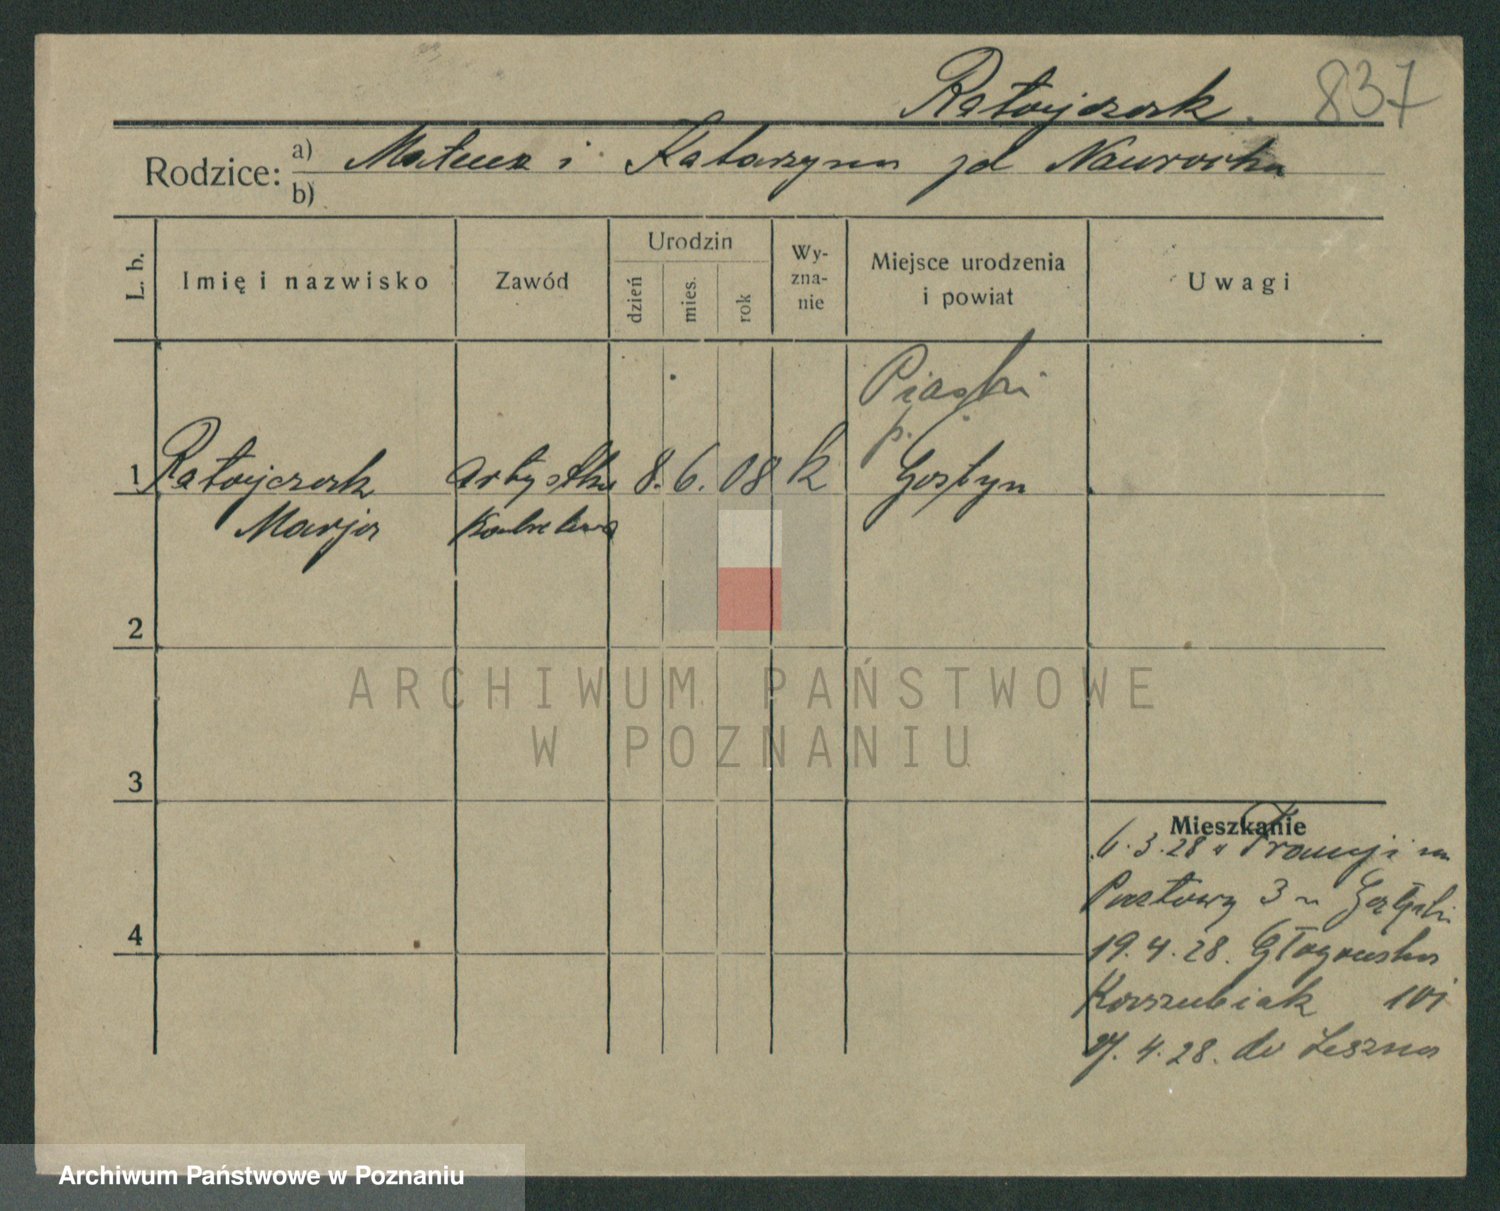 Ratajczak. 837
Rodzice: a) Mateusz i Katarzyna zd Nawrocka
b)
L. b.
Imię i nazwisko
Zawód
Urodzin
dzień
mies.
rok
Wy-
zna-
nie
Miejsce urodzenia
i powiat
Uwagi
Piaski
p.
1 Ratajczak artystka 8. 6. 08 k Gostyn
Marja Kabaretowa
2
3
4
Mieszkanie
6.3.28 z Francji na
Pocztowy 3
19.4.28. Głogowska
Kaszubiak 101
27.4.28. do Leszna
ARCHIWUM PAŃSTWOWE
W POZNANIU
Archiwum Państwowe w Poznaniu